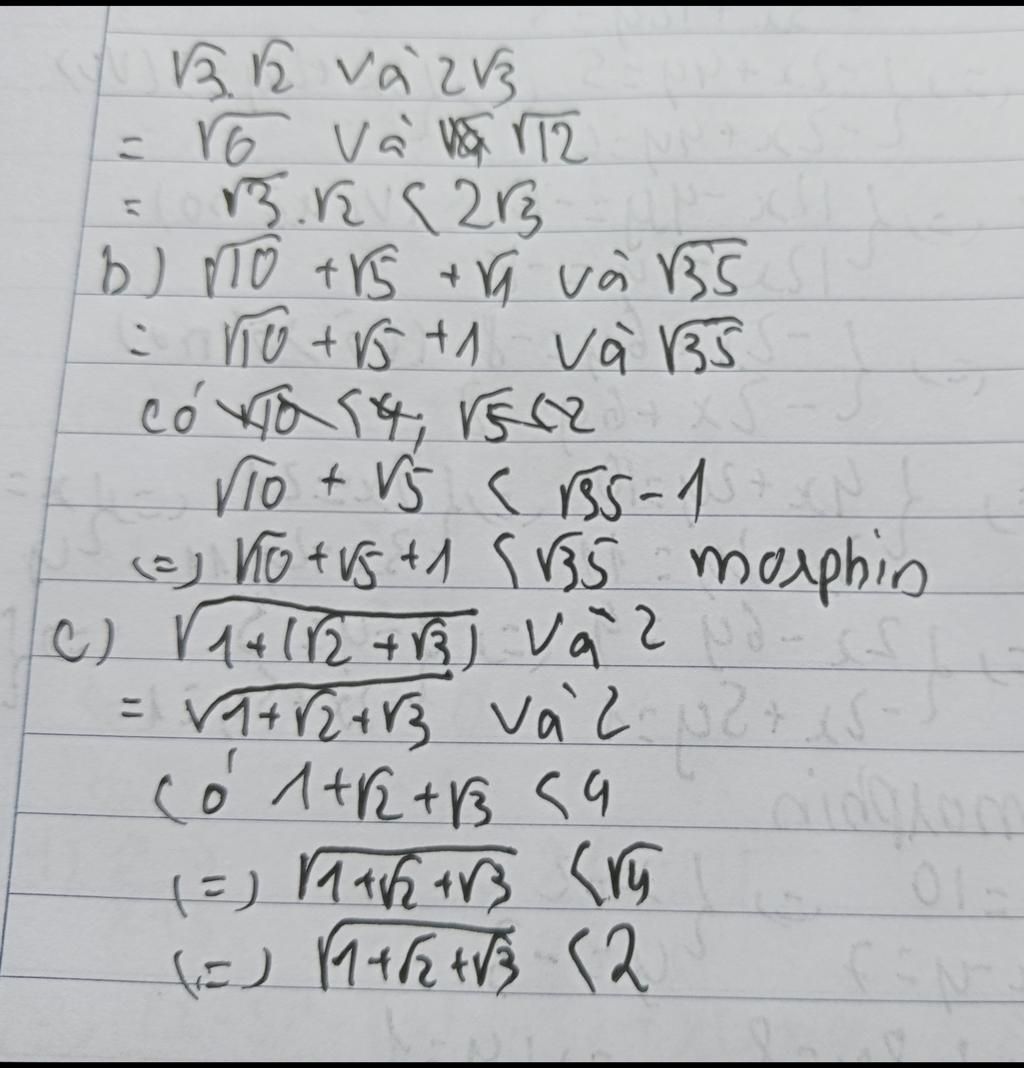 √3.√2 và 2√3
= √6 và √12
= √3.√2 < 2√3
b) √10 + √5 + √1 và √35
= √10 + √5 + 1 và √35
có √10 < 4; √5 < 2
√10 + √5 < √35 - 1
(=) √10 + √5 + 1 < √35 morphin
c) √1+(√2 + √3) và 2
= √1+√2+√3 và 2
có 1+√2+√3 < 4
(=) √1+√2+√3 < √4
(=) √1+√2+√3 < 2